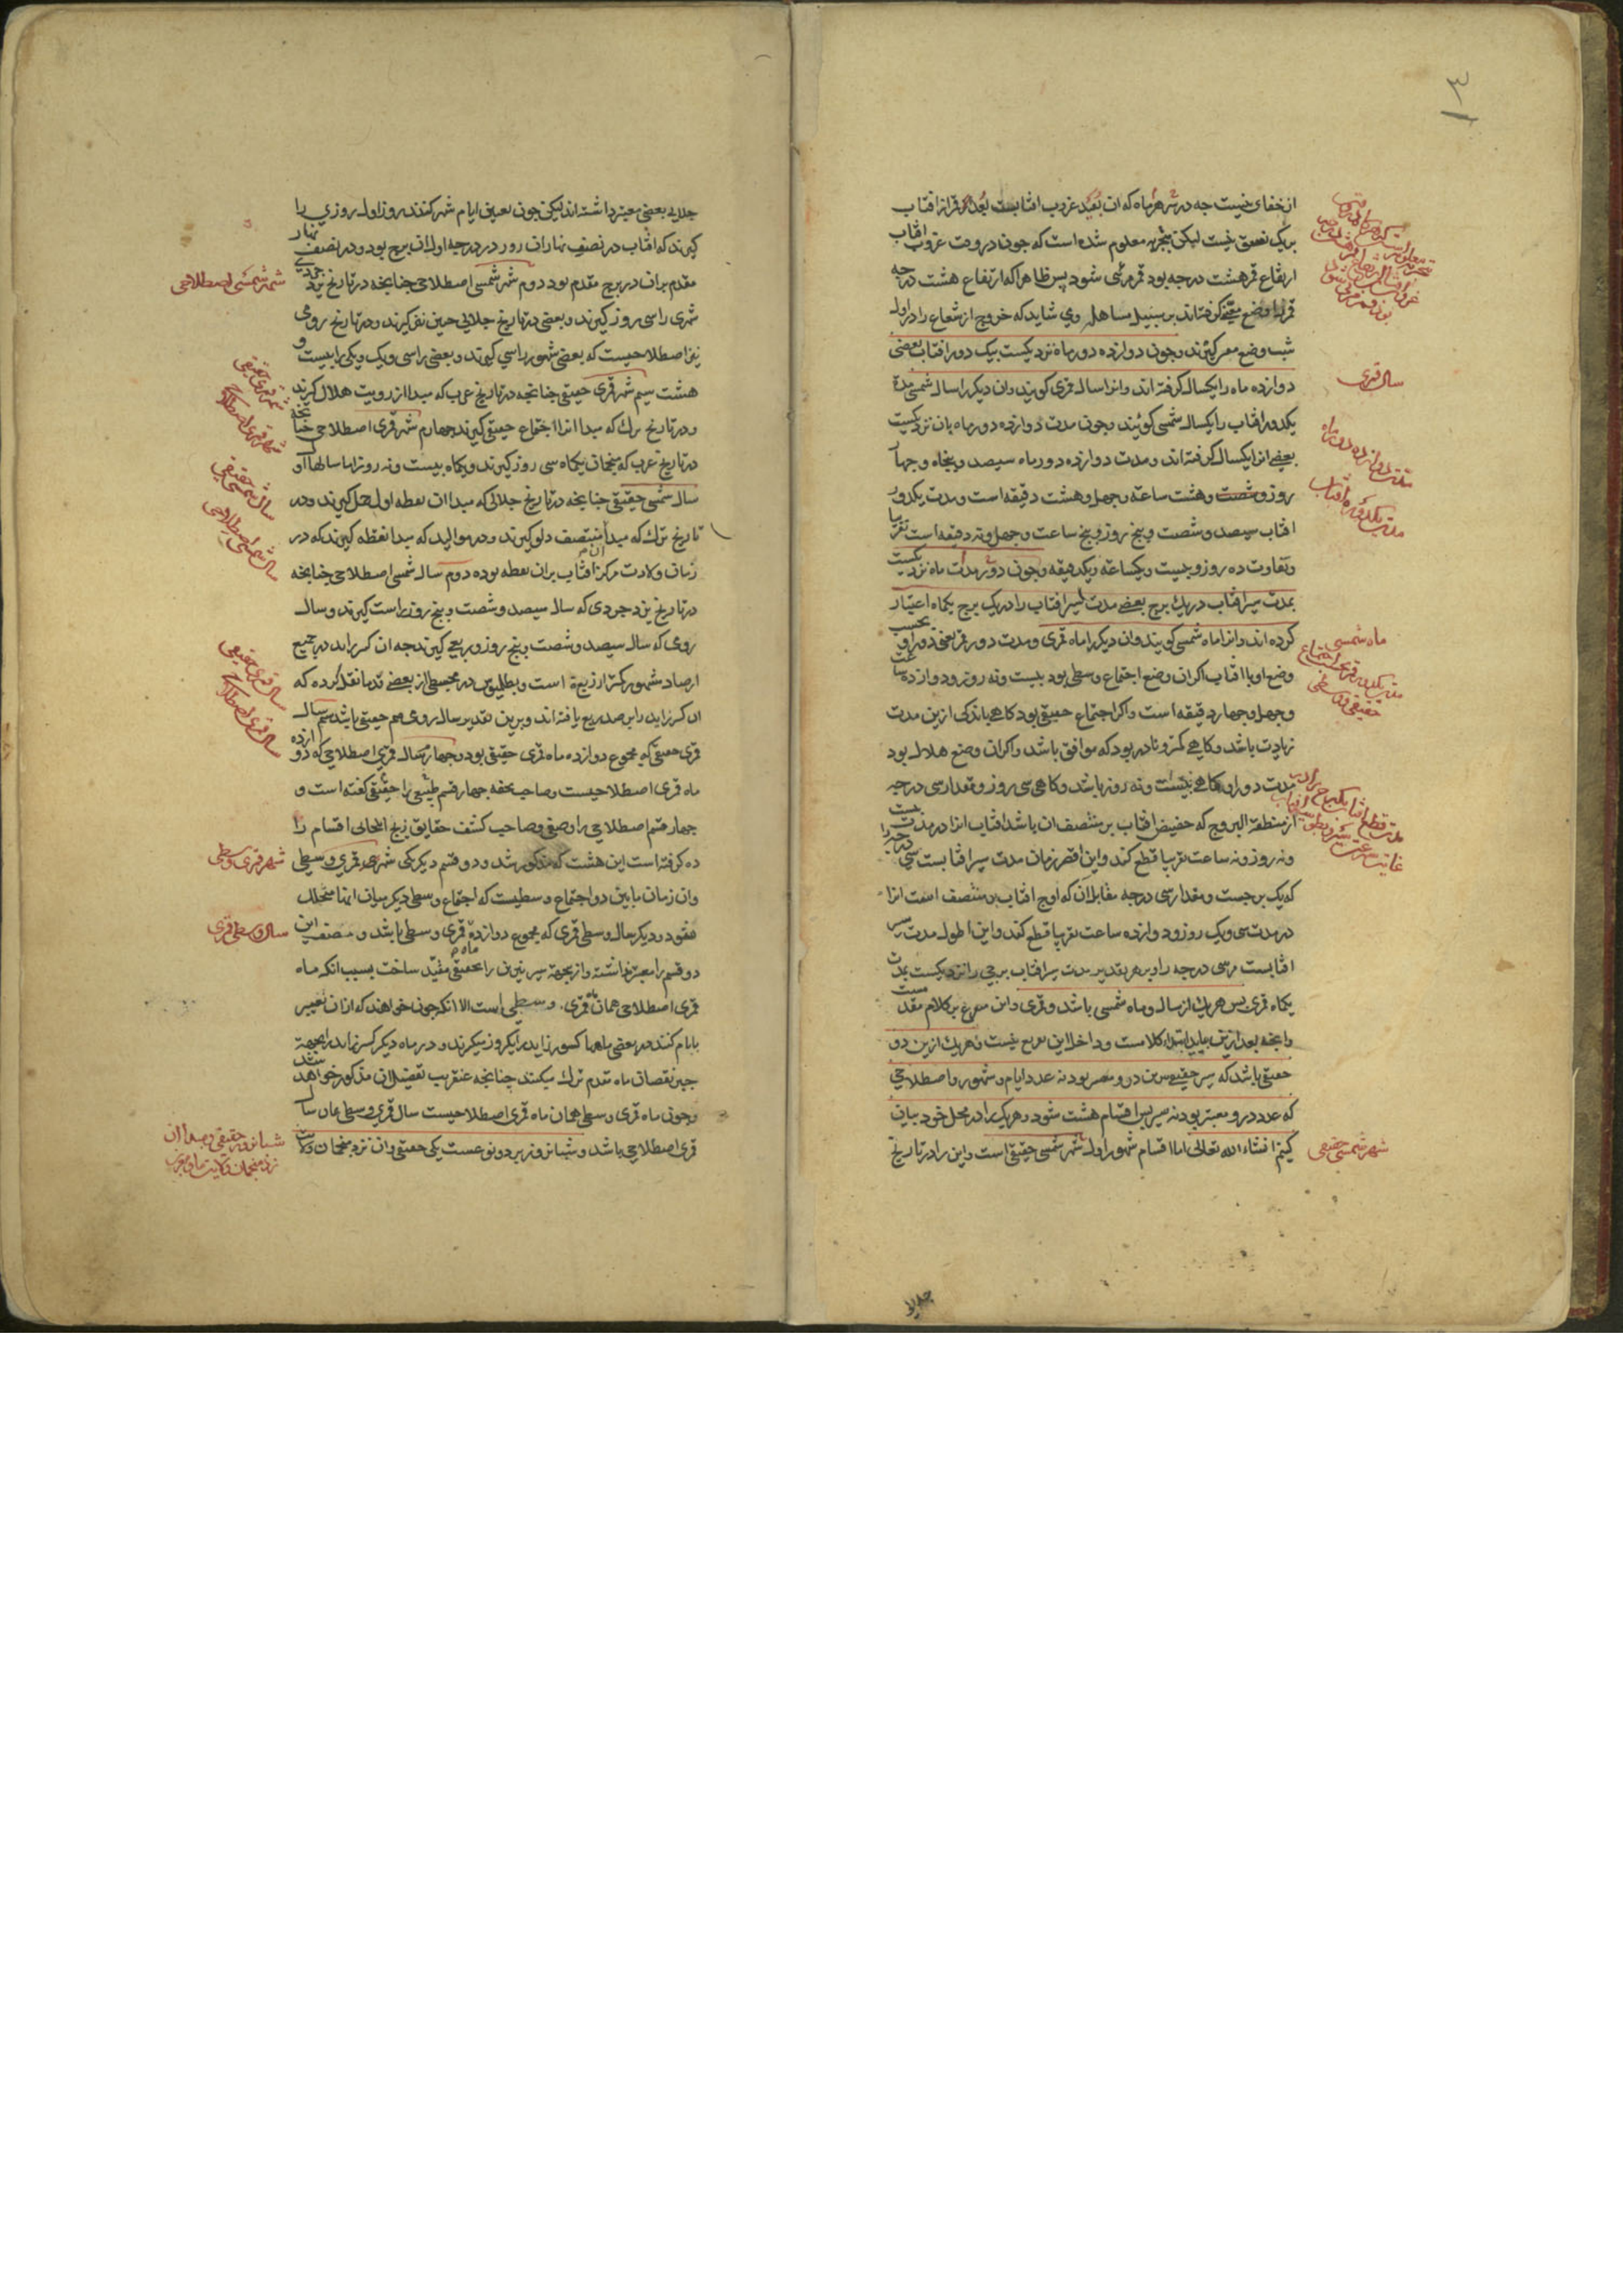 از خفای نیست چه در شهر هر ماه که آن بُعد غروب افتابست بُعد قمر از افتاب
بر یک نسق نیست لیکن بتجربه معلوم شده است که چون در وقت غروب افتاب
ارتفاع قمر هشت درجه بود قمر مرئی شود پس ظاهرا که ارتفاع هشت درجه
قمر را وضع معین گرفته اند بر سبیل مساهله وی شاید که خروج از شعاع را در اول
شب وضع معین گیرند و چون دوازده دور ماه نزدیکست بیک دور افتاب بعضی
دوازده ماه را یکسال گرفته اند و انرا سال قمری گویند و ان دیگر را سال شمسی مدة
یکدور افتاب را یکسال شمسی گویند و چون مدت دوازده دور ماه بان نزدیکست
بعضی انرا یکسال گرفته اند و مدت دوازده دور ماه سیصد و پنجاه و چهار
روز و هشت ساعة و چهل و هشت دقیقه است و مدت یکدور
افتاب سیصد و شصت و پنج روز و پنج ساعت و چهل و نه دقیقه است تقریبا
و تفاوت ده روز و بیست و یکساعه و یکدقیقه و چون دور مدت ماه نزدیکست
بمدت سیر افتاب در یک برج بعضی مدت سیر افتاب را در یک برج یکماه اعتبار
کرده اند و انرا ماه شمسی گویند و ان دیگر را ماه قمری و مدت دور قمر اعنی دور او بحسب
وضع او با افتاب اگر ان وضع اجتماع وسطی بود بیست و نه روز و دوازده ساعت
و چهل و چهار دقیقه است و اگر اجتماع حقیقی بود گاهی باندکی ازین مدت
زیادت باشد و گاهی کمتر و نادر بود که موافق باشد و اگر ان وضع هلال بود
مدت دور او گاهی بیست و نه روز باشد و گاهی سی روز و مقدار سی درجه
از منطقة البروج که حضیض افتاب بر منتصف ان باشد افتاب انرا در مدت بیست
و نه روز و نه ساعت تقریبا قطع کند و این اقصر زمان مدت سیر افتابست سی درجه را
که یک برجست و مقدار سی درجه مقابل ان که اوج افتاب بر منتصف است انرا
در مدت سی و یک روز و دوازده ساعت تقریبا قطع کند و این اطول مدت سیر
افتابست مر سی درجه را و بر هر تقدیر مدت سیر افتاب برجی را نزدیکست بمدت
یکماه قمری پس هر یک از سال و ماه شمسی باشد و قمری و این متفرع بر کلام مقدمست
و انچه بعد ازین بیاید ابتداء کلامست و داخل این تفریع نیست و هر یک ازین دو
حقیقی باشد که سیر حقیقی نیرین در و معتبر بود نه عدد ایام و شهور و اصطلاحی
که عدد در و معتبر بود نه سیر پس اقسام هشت شود و هر یک را در محل خود بیان
کنیم انشاء الله تعالی اما اقسام شهور اول شهر شمسی حقیقی است و این را در تاریخ
سال قمری
مدت دوازده دور ماه
مدت یکدوره افتاب
ماه شمسی
شهر شمسی حقیقی
جلالی بعضی معتبر داشته اند لیکن چون تعیین ایام شهر کنند روز اول روزی را
گیرند که افتاب در نصف نهار ان روز در درجه اول ان برج بود و در نصف نهار
مقدم بران در برج مقدم بود دوم شهر شمسی اصطلاحی چنانچه در تاریخ یزدجردی
شهری را سی روز گیرند و بعضی در تاریخ جلالی چنین نیز گیرند و در تاریخ رومی
نیز اصطلاحیست که بعضی شهور را سی گیرند و بعضی را سی و یک و یکی را بیست و
هشت سیم شهر قمری حقیقی چنانچه در تاریخ عرب که مبدا از رویت هلال گیرند
و در تاریخ ترک که مبدا انرا اجتماع حقیقی گیرند چهارم شهر قمری اصطلاحی چنانچه
در تاریخ عرب که منجمان یکماه سی روز گیرند و یکماه بیست و نه روز اما سالها اول
سال شمسی حقیقی چنانچه در تاریخ جلالی که مبدا ان نقطه اول حمل گیرند و در
تاریخ ترک که مبدأ منتصف دلو گیرند و در موالید که مبدا نقطه گیرند که در
زمان ولادت مرکز افتاب بران نقطه بوده دوم سال شمسی اصطلاحی چنانچه
در تاریخ یزدجردی که سال سیصد و شصت و پنج روز راست گیرند و سال
رومی که سال سیصد و شصت و پنج روز و ربعی گیرند چه ان کسر زاید در جمیع
ارصاد مشهور کمتر از ربع است و بطلیموس در مجسطی از بعضی قدما نقل کرده که
ان کسر زاید را برصد ربع یافته اند و برین تقدیر سال رومی هم حقیقی باشد سیم سال
قمری حقیقی که مجموع دوازده ماه قمری حقیقی بود چهارم سال قمری اصطلاحی که دوازده
ماه قمری اصطلاحیست و صاحب تحفه چهار قسم طبیعی را حقیقی گفته است و
چهار قسم اصطلاحی را وضعی و صاحب کشف حقایق زیج ایلخانی اقسام را
ده گرفته است این هشت که مذکور شد و دو قسم دیگر یکی شهر قمری وسطی
و ان زمان مابین دو اجتماع وسطیست که اجتماع وسطی دیگر میان انها متخلل
نشود و دیگر سال وسطی قمری که مجموع دوازده ماه قمری وسطی باشد و مصنف این
دو قسم را معتبر نداشته و ازینجهة سیر نیرین را بحقیقی مقید ساخت بسبب انکه ماه
قمری اصطلاحی همان ماه قمری وسطی است الا انکه چون خواهند که ازان تعبیر
بایام کنند در بعضی ماهها کسور زاید را یکروز میگیرند و در ماه دیگر کسر زاید را بجهة
جبر نقصان ماه مقدم ترک میکنند چنانچه عنقریب تفصیل ان مذکور خواهد شد
و چون ماه قمری وسطی همان ماه قمری اصطلاحیست سال قمری وسطی همان سال
قمری اصطلاحی باشد و شبانروز بر دو نوعست یکی حقیقی و ان نزد منجمان ولایت
شهر شمسی اصطلاحی
شهر قمری حقیقی
شهر قمری اصطلاحی
سال شمسی حقیقی
سال شمسی اصطلاحی
سال قمری حقیقی
سال قمری اصطلاحی
شهر قمری وسطی
سال وسطی قمری
شبانروز حقیقی و مبدا ان